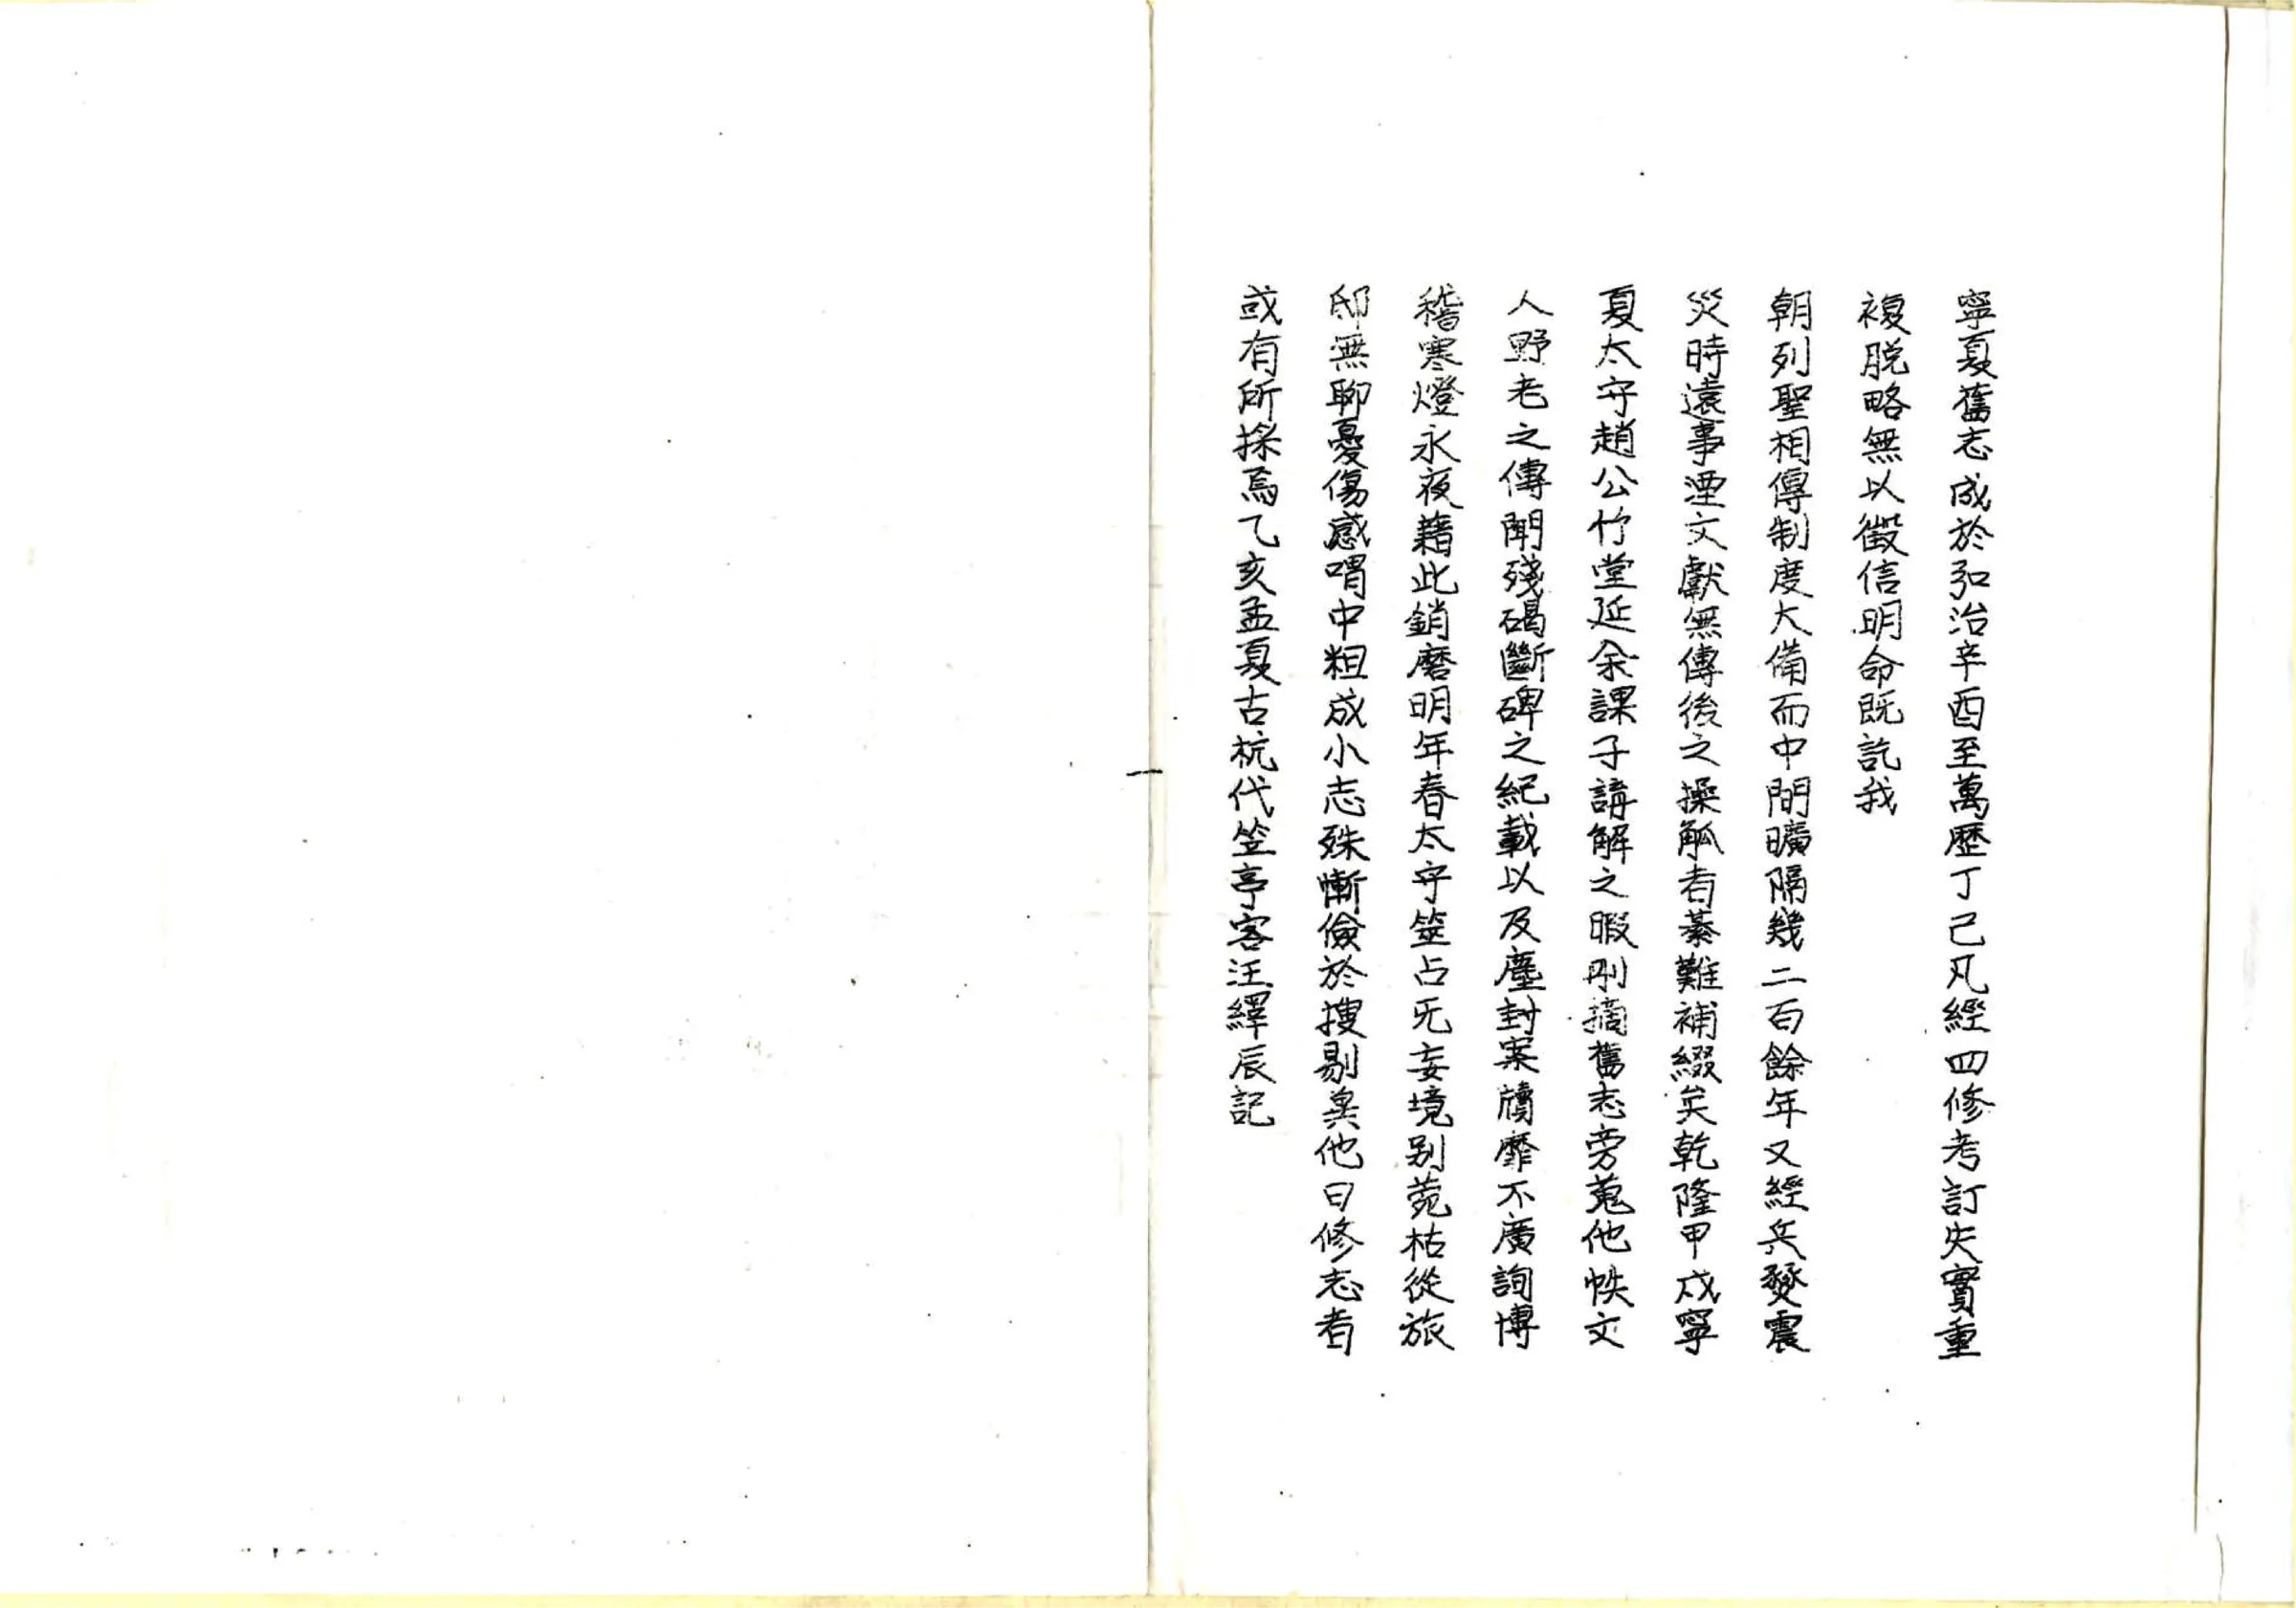 寧夏舊志成於弘治辛酉至萬歷丁己凡經四修考訂失實重
複脱略無以徵信明命既訖我
朝列聖相傳制度大備而中間曠隔幾二百餘年又經兵燹震
災時遠事湮文獻無傳後之操觚者綦難補綴矣乾隆甲戌寧
夏太守趙公竹堂延余課子講解之暇刪摘舊志旁蒐他帙文
人野老之傳聞殘碣斷碑之紀載以及塵封案牘靡不廣詢博
稽寒燈永夜藉此銷磨明年春太守筮占无妄境别菀枯從旅
邸無聊憂傷感喟中粗成小志殊慚儉於搜剔兾他日修志者
或有所採焉乙亥孟夏古杭代笠亭客汪繹辰記